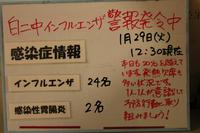 白二中インフルエンザ警報発令中
1月29日(火)
12:30現在
感染症情報
インフルエンザ 24名
感染性胃腸炎 2名
本日も20名を超えて
います。発熱欠席も
多い状況です。
1人1人が意識して
予防行動に取り
組みましょう!